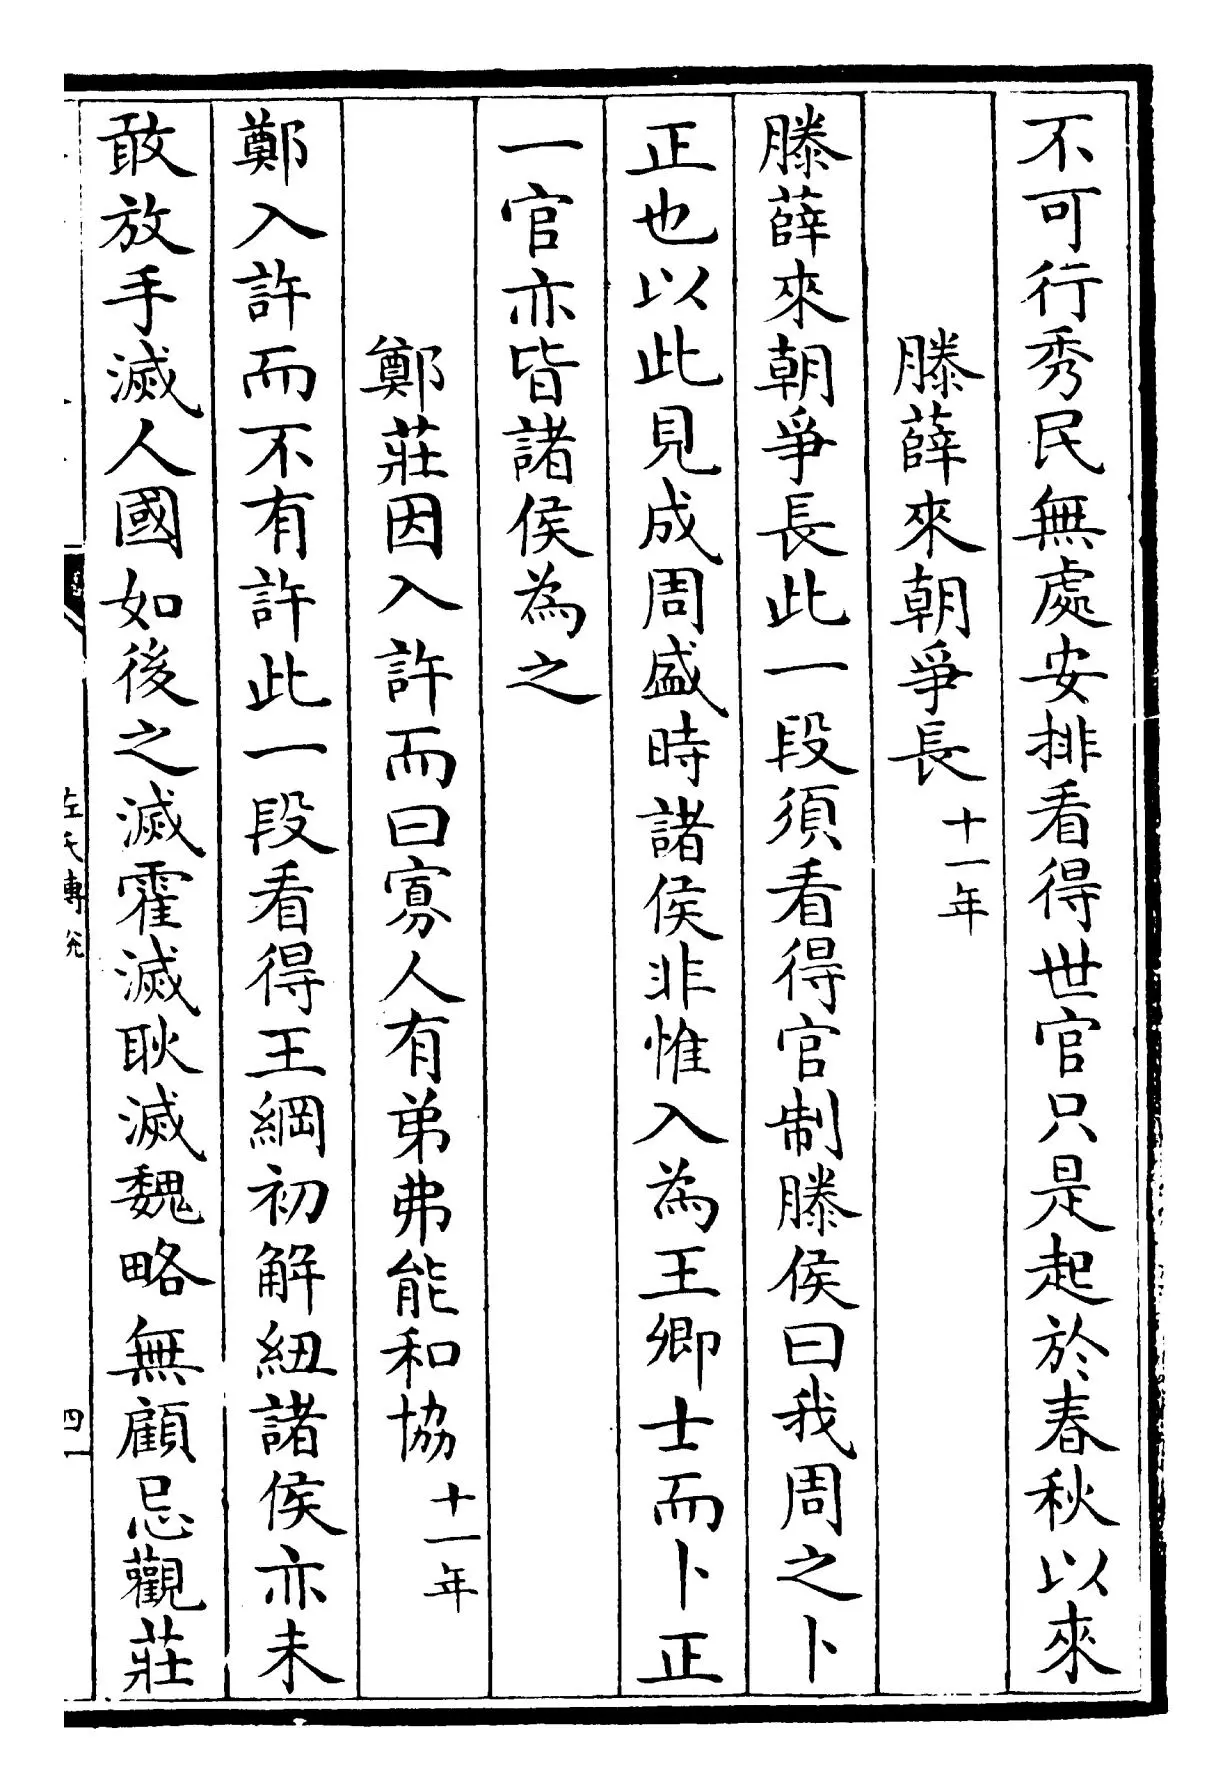 不可行秀民無處安排看得世官只是起於春秋以來
滕薛來朝爭長十一年
滕薛來朝爭長此一段須看得官制滕侯曰我周之卜
正也以此見成周盛時諸侯非惟入為王卿士而卜正
一官亦皆諸侯為之
鄭莊因入許而曰寡人有弟弗能和協十一年
鄭入許而不有許此一段看得王綱初解紐諸侯亦未
敢放手滅人國如後之滅霍滅耿滅魏略無顧忌觀莊
左氏傳說
四